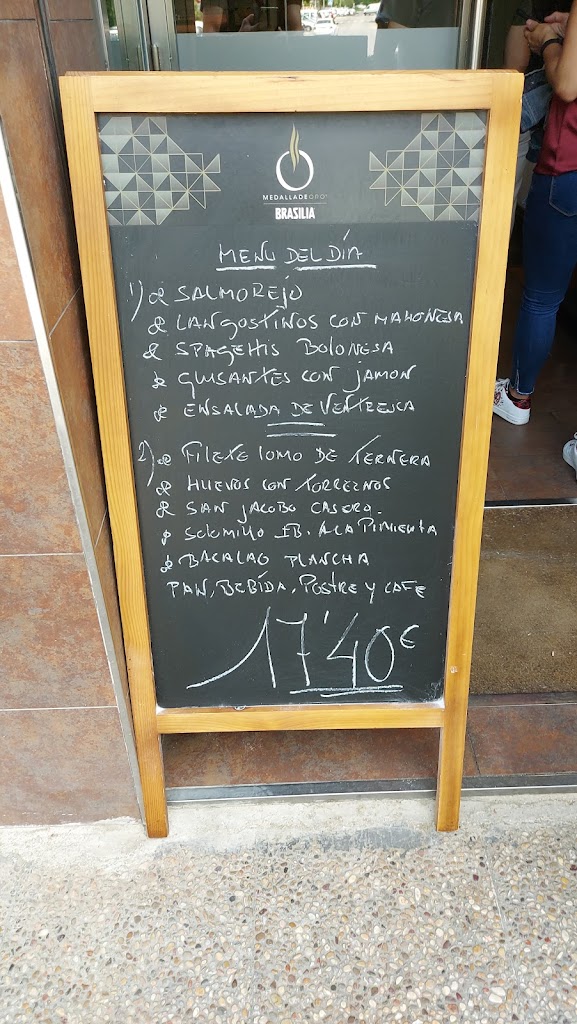 MEDALLADEORO
BRASILIA
MENU DEL DÍA
1) SALMOREJO
LANGOSTINOS CON MAHONESA
SPAGETTIS BOLONESA
GUISANTES CON JAMON
ENSALADA DE VENTRESCA
2) FILETE LOMO DE TERNERA
HUEVOS CON TORREZNOS
SAN JACOBO CASERO.
SOLOMILLO IB. A LA PIMIENTA
BACALAO PLANCHA
PAN, BEBÍDA, POSTRE Y CAFE
17'40€